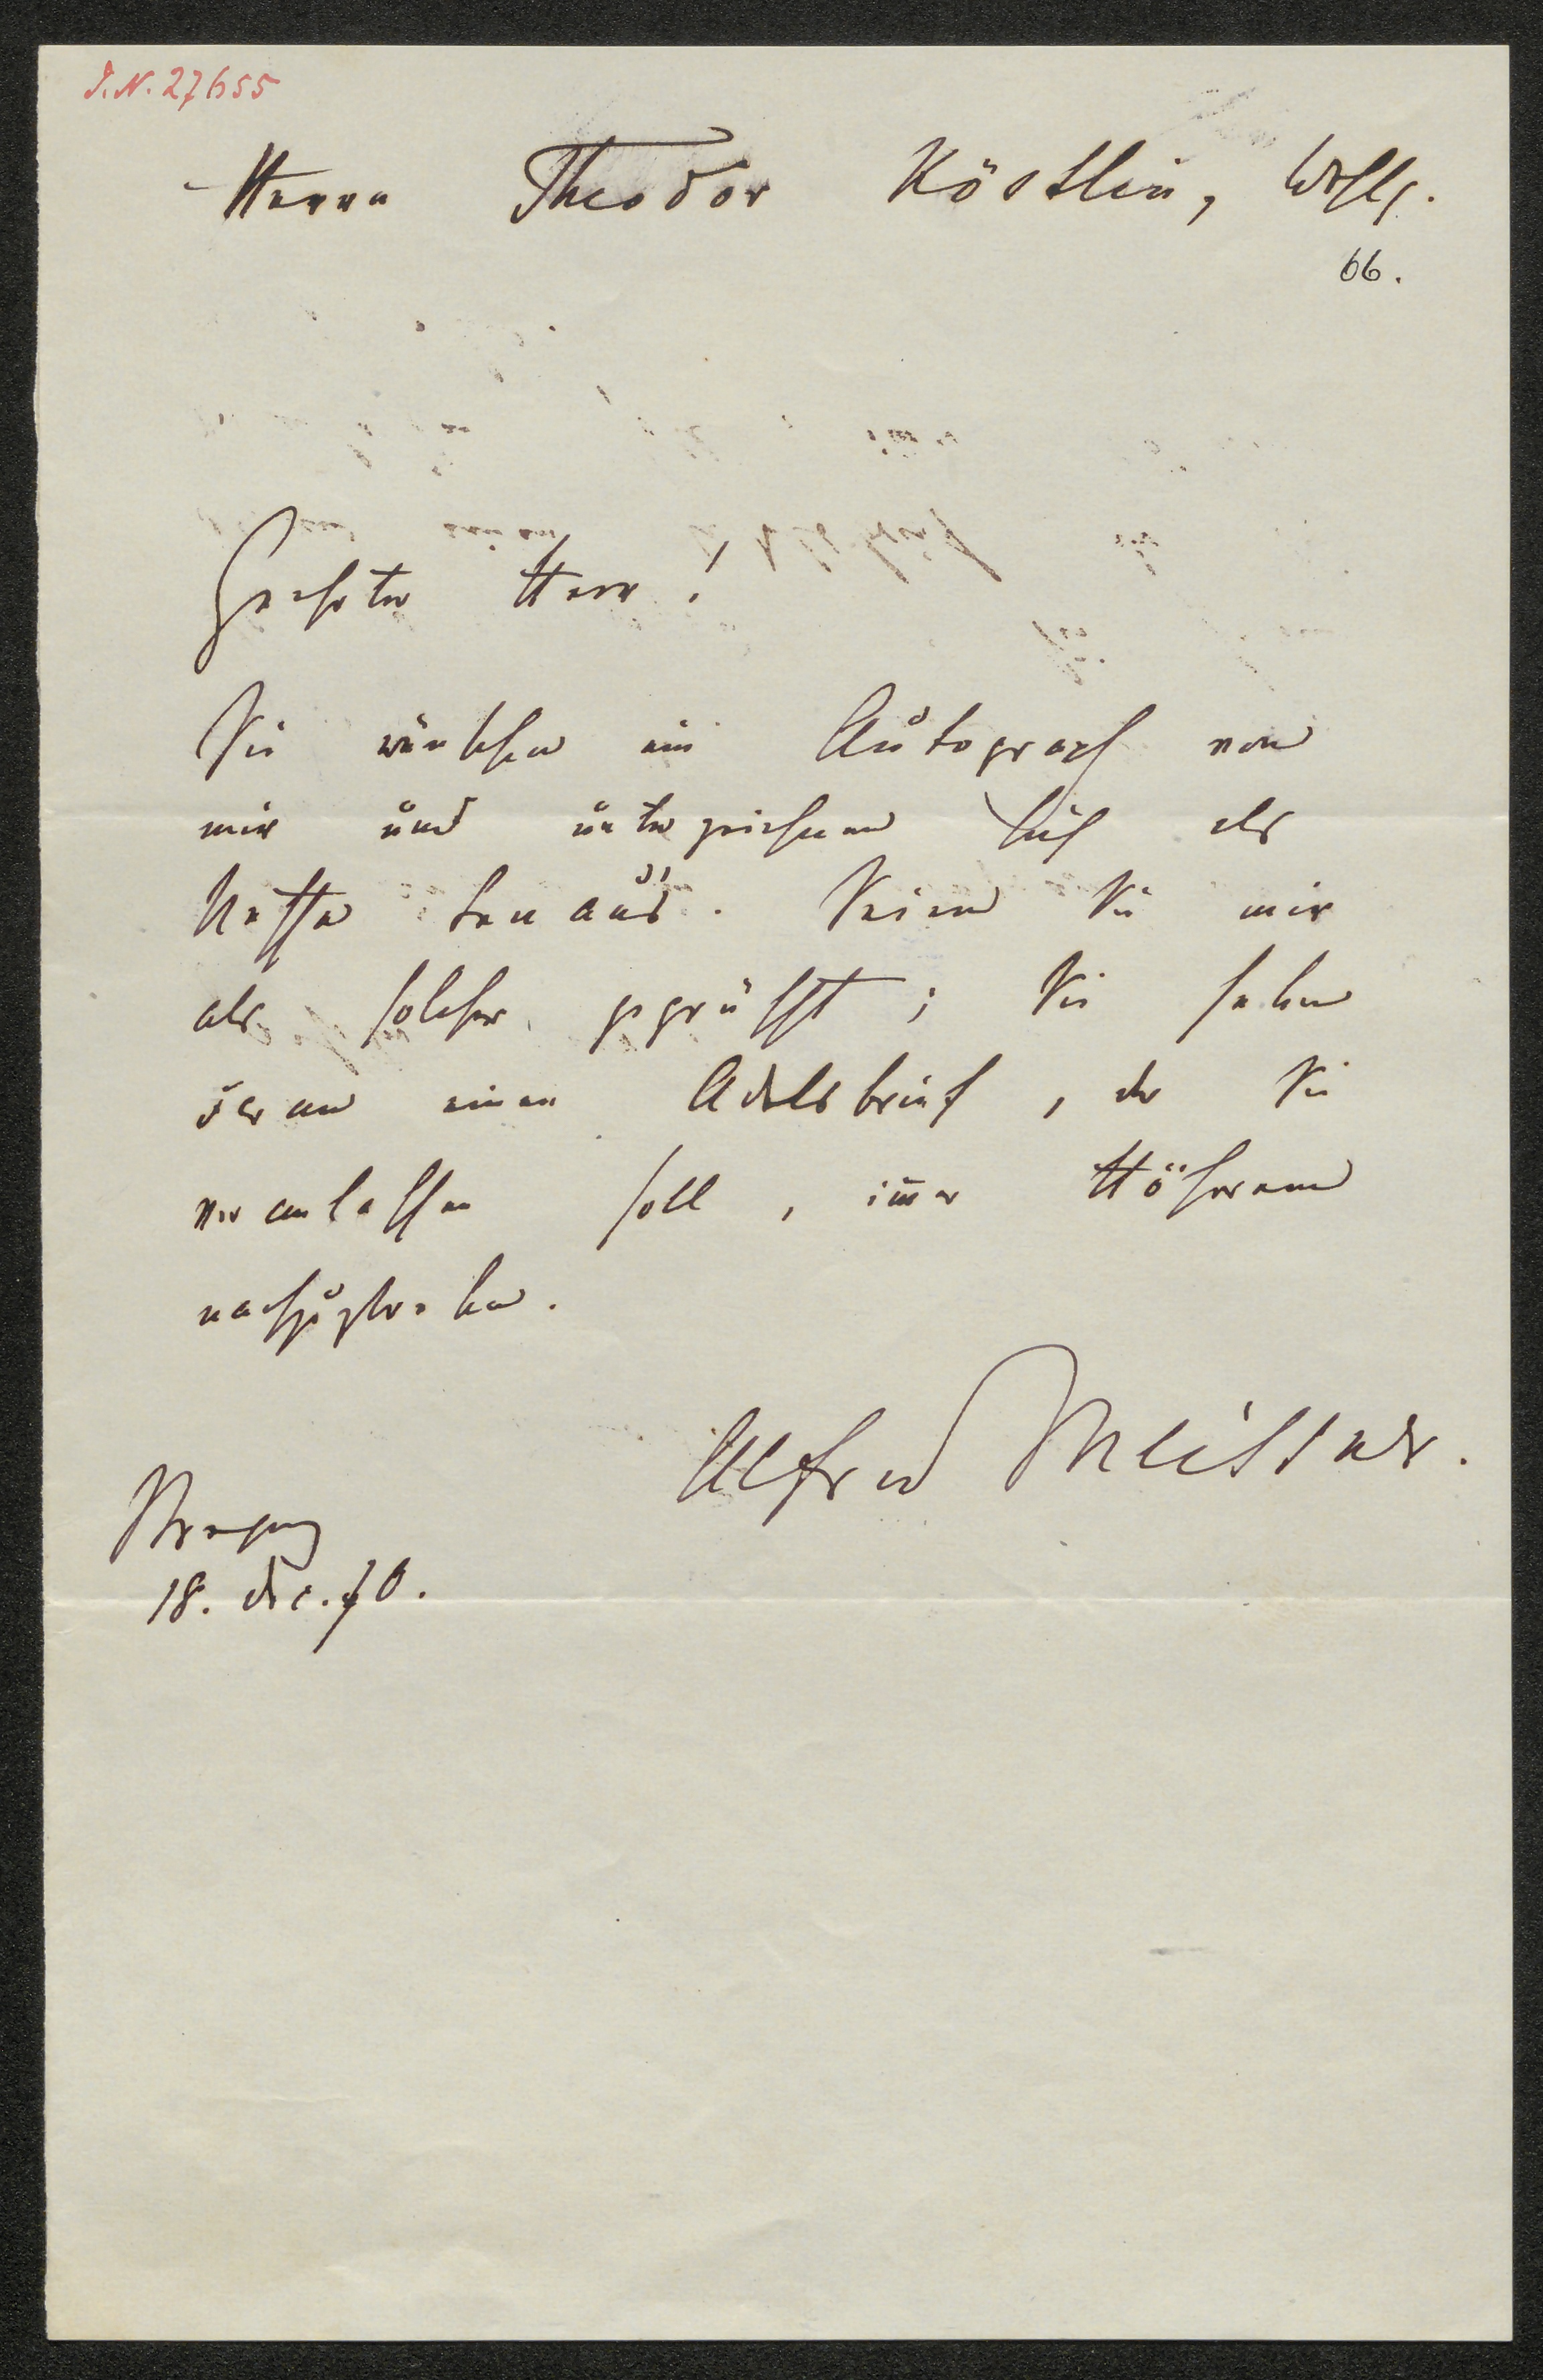 I.N. 27655
Herrn Theodor Köstlin, Wohlg.
66.
Geehrter Herr!
Sie wünschen ein Autograph von
mir und unterzeichnen sich als
Neffe Lenaus. Seien Sie mir
als solcher gegrüßt; Sie haben
daran einen Adelsbrief, der Sie
veranlassen soll, im̅er Höherem
nachzustreben.
Alfred Meissner.
Bregenz
18. Dec. 70.